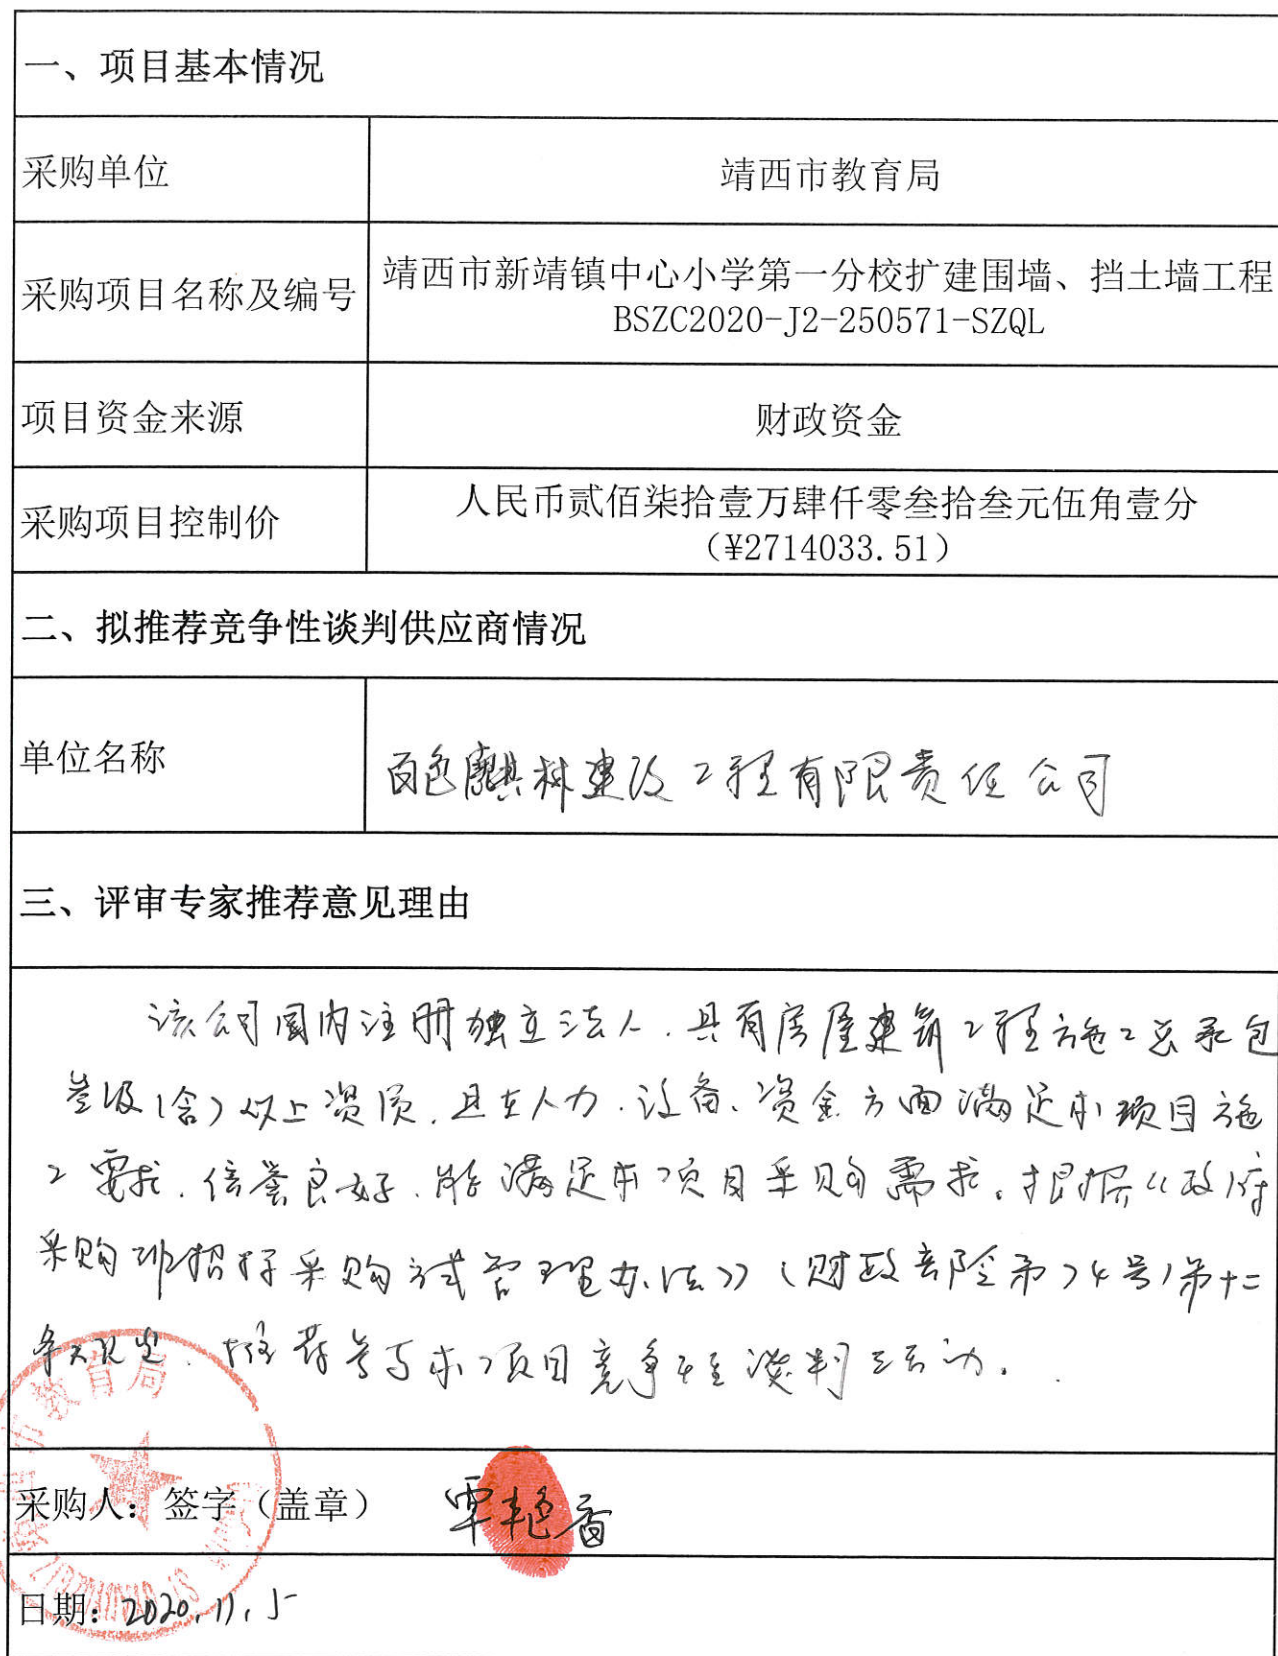 一、项目基本情况
采购单位
靖西市教育局
采购项目名称及编号
靖西市新靖镇中心小学第一分校扩建围墙、挡土墙工程
BSZC2020-J2-250571-SZQL
项目资金来源
财政资金
采购项目控制价
人民币贰佰柒拾壹万肆仟零叁拾叁元伍角壹分
（¥2714033.51）
二、拟推荐竞争性谈判供应商情况
单位名称
百色麒林建设工程有限责任公司
三、评审专家推荐意见理由
该公司国内注册独立法人.具有房屋建筑工程施工总承包
叁级(含)以上资质.且在人力.设备、资金方面满足本项目施
工要求.信誉良好.能满足本项目采购需求。根据《政府
采购非招标采购方式管理办法》(财政部令第74号)第十二
条规定.推荐参与本项目竞争性谈判活动。
教育局
采购人：签字（盖章）
覃艳香
日期：2020.11.5